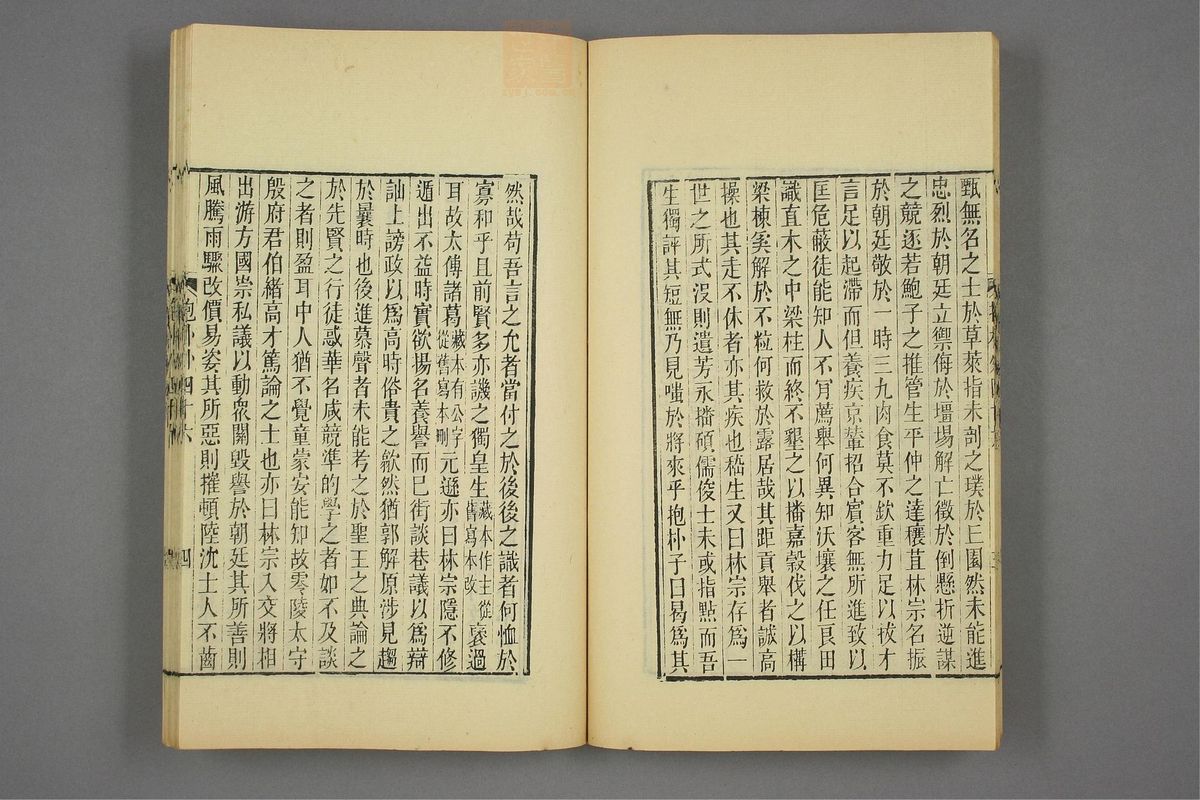 甄無名之士於草萊指未剖之璞於丘園然未能進
忠烈於朝廷立禦侮於壃場解亡徵於倒懸折逆謀
之競逐若鮑子之推管生平仲之達穰苴林宗名振
於朝廷敬於一時三九肉食莫不欽重力足以拔才
言足以起滯而但養疾京輦招合賓客無所進致以
匡危蔽徒能知人不肎薦舉何異知沃壤之任良田
識直木之中梁柱而終不墾之以播嘉穀伐之以構
梁棟奚解於不粒何救於露居哉其距貢舉者誠高
操也其走不休者亦其疾也嵇生又曰林宗存爲一
世之所式沒則遺芳永播碩儒俊士未或指點而吾
生獨評其短無乃見嗤於將來乎抱朴子曰曷爲其
然哉苟吾言之允者當付之於後後之識者何恤於
寡和乎且前賢多亦譏之獨皇生藏本作主從舊寫本改褒過
耳故太傅諸葛藏本有公字從舊寫本刪元遜亦曰林宗隱不修
遁出不益時實欲揚名養譽而巳街談巷議以爲辯
訕上謗政以爲高時俗貴之歙然猶郭解原涉見趨
於曩時也後進慕聲者未能考之於聖王之典論之
於先賢之行徒惑華名咸競準的學之者如不及談
之者則盈耳中人猶不覺童蒙安能知故零陵太守
殷府君伯緒高才篤論之士也亦曰林宗入交將相
出游方國崇私議以動衆關毀譽於朝廷其所善則
風騰雨驟改價易姿其所惡則摧頓陸沈士人不齒
抱朴外四十六
四